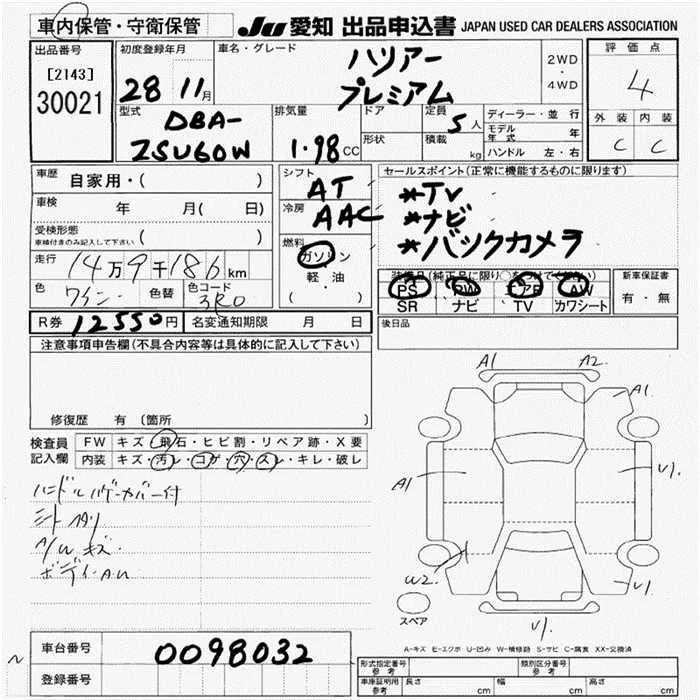 車内保管・守衛保管
JU 愛知 出品申込書 JAPAN USED CAR DEALERS ASSOCIATION
出品番号 初度登録年月 車名・グレード 評価点
[2143]
30021
28 11月
ハリアー
プレミアム
2WD
・
4WD
4
外装 内装
C C
型式 排気量 ドア 定員 ディーラー・並行
DBA-
ZSU60W
1.98CC
5人
形状 積載 kg
モデル年式 年
ハンドル 左・右
車歴 自家用・( )
シフト AT
セールスポイント(正常に機能するものに限ります)
*TV
*ナビ
*バックカメラ
車検 年 月( 日)
冷房 AAC
受検形態
車検付きのみ記入して下さい( )
燃料 ガソリン
軽・油
( ・ )
走行 14万9千186km
色 ワイン 色替 色コード 3R0
装備品(純正品に限り○をつけて下さい) 新車保証書
PS PW エアB AW
SR ナビ TV カワシート
有・無
R券 12550円 名変通知期限 月 日
後日品
注意事項申告欄(不具合内容等は具体的に記入して下さい)
修復歴 有 (箇所
検査員
記入欄
FW キズ・飛石・ヒビ割・リペア跡・X要
内装 キズ・汚レ・コゲ・穴・スレ・キレ・破レ
ハンドルハゲ・カバー付
シートスリ
A/W キズ
ボディーAU
A1 A2
A1
A1
U1
W2
U1
U1
スペア
A-キズ E-エクボ U-凹み W-補修跡 S-サビ C-腐食 XX-交換済
車台番号 0098032
登録番号
形式指定番号 参考 類別区分番号 参考
車庫証明用 参考 長さ cm 幅 cm 高さ cm